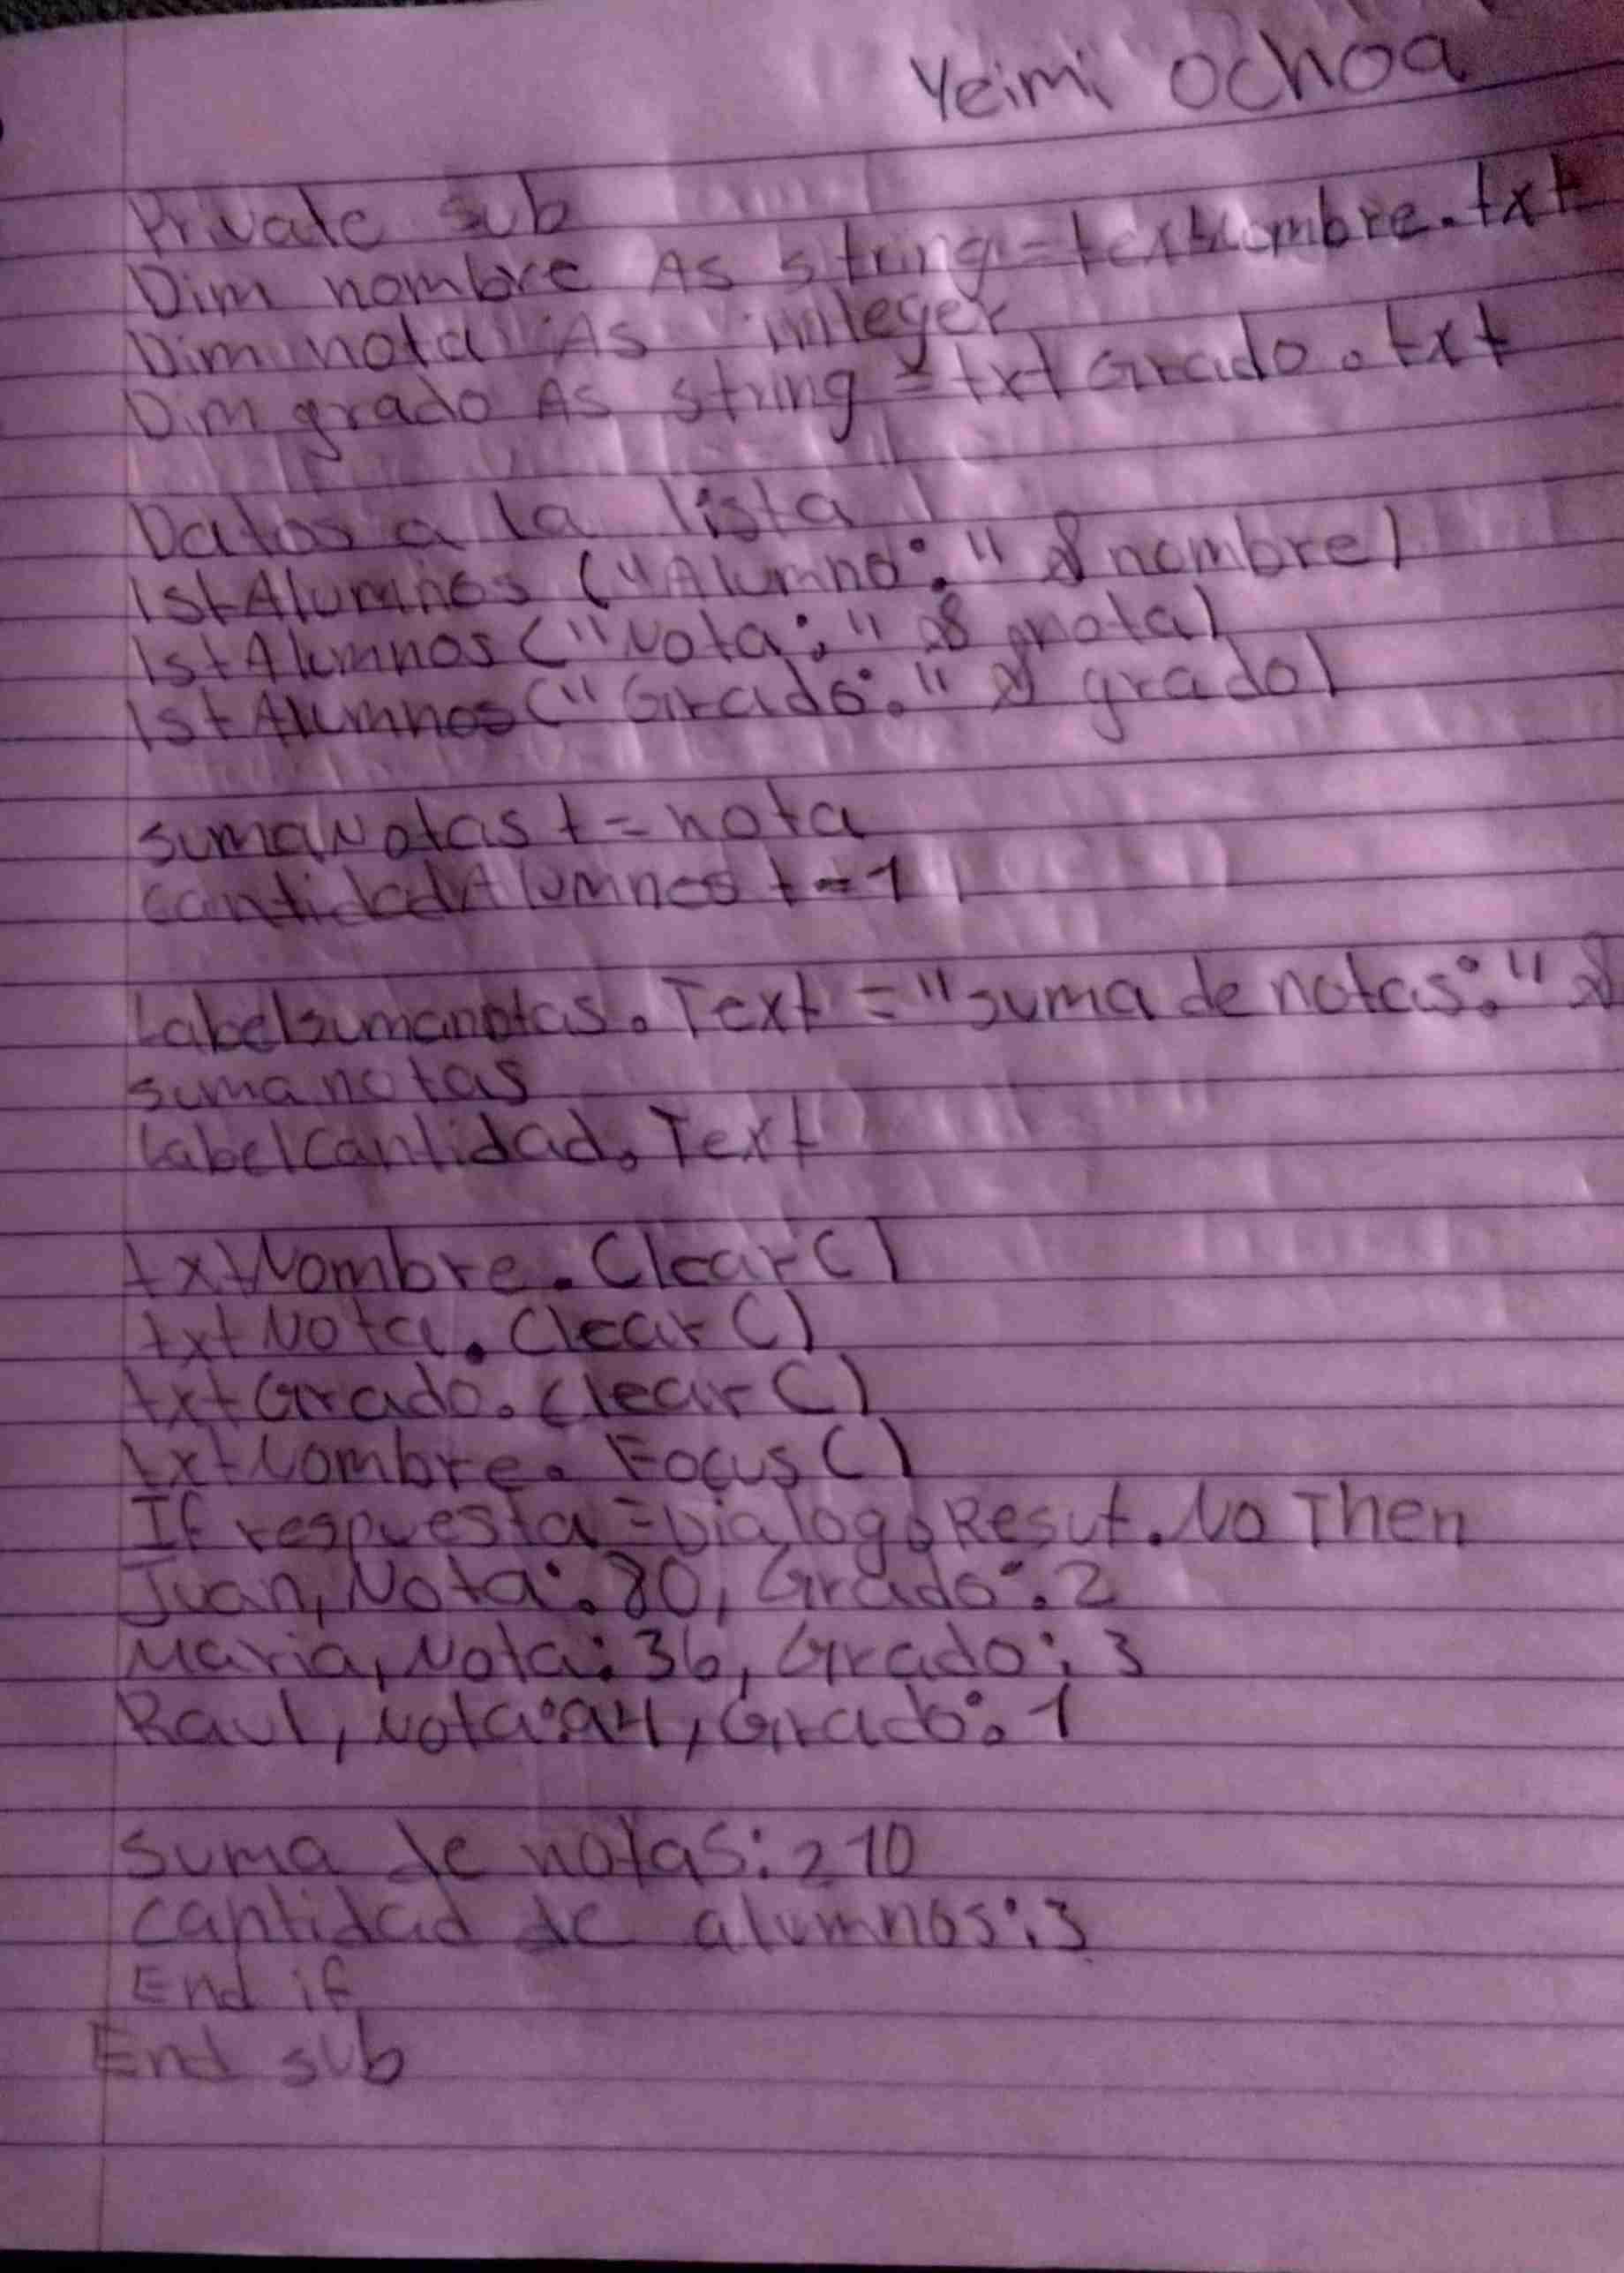 Yeimi Ochoa
Private sub
Dim nombre As string = textNombre.txt
Dim nota As integer
Dim grado As string = txtGrado.txt
Datos a la lista
lstAlumnos ("Alumno:" & nombre)
lstAlumnos ("Nota:" & nota)
lstAlumnos ("Grado:" & grado)
sumaNotas += nota
cantidadAlumnos += 1
Labelsumanotas.Text = "suma de notas:" &
suma notas
LabelCantidad.Text
txtNombre.Clear()
txtNota.Clear()
txtGrado.Clear()
txtNombre.Focus()
If respuesta = Dialog.Resut.No Then
Juan, Nota: 80, Grado: 2
Maria, Nota: 36, Grado: 3
Raul, Nota: 94, Grado: 1
Suma de notas: 210
Cantidad de alumnos: 3
End if
End sub